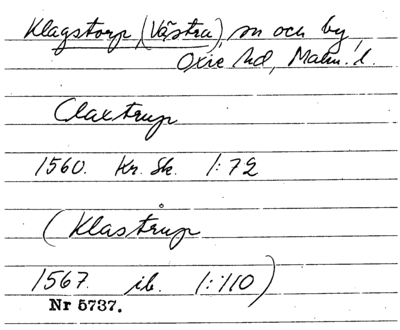 Klagstorp (Västra), sn och by,
Oxie hd, Malm. l.
Claxtrup
1560. Kr. Sk. 1:72
(Klastrup
1567. ib. 1:110)
Nr 5737.